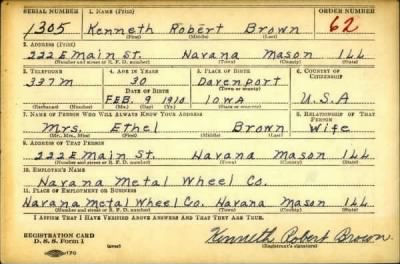 SERIAL NUMBER 1. NAME (Print) ORDER NUMBER
1305 Kenneth Robert Brown 62
(First) (Middle) (Last)
2. ADDRESS (Print)
222 E Main St. Havana Mason ILL
(Number and street or R. F. D. number) (Town) (County) (State)
3. TELEPHONE 4. AGE IN YEARS 5. PLACE OF BIRTH 6. COUNTRY OF CITIZENSHIP
337M 30 Davenport
(Town or county)
DATE OF BIRTH
FEB. 9 1910 Iowa U.S.A
(Exchange) (Number) (Mo.) (Day) (Yr.) (State or country)
7. NAME OF PERSON WHO WILL ALWAYS KNOW YOUR ADDRESS 8. RELATIONSHIP OF THAT PERSON
Mrs. Ethel Brown Wife
(Mr., Mrs., Miss) (First) (Middle) (Last)
9. ADDRESS OF THAT PERSON
222 E Main St. Havana Mason ILL
(Number and street or R. F. D. number) (Town) (County) (State)
10. EMPLOYER'S NAME
Havana Metal Wheel Co.
11. PLACE OF EMPLOYMENT OR BUSINESS
Havana Metal Wheel Co. Havana Mason ILL
(Number and street or R. F. D. number) (Town) (County) (State)
I AFFIRM THAT I HAVE VERIFIED ABOVE ANSWERS AND THAT THEY ARE TRUE.
REGISTRATION CARD
D. S. S. Form 1 Kenneth Robert Brown
(over) (Registrant's signature)